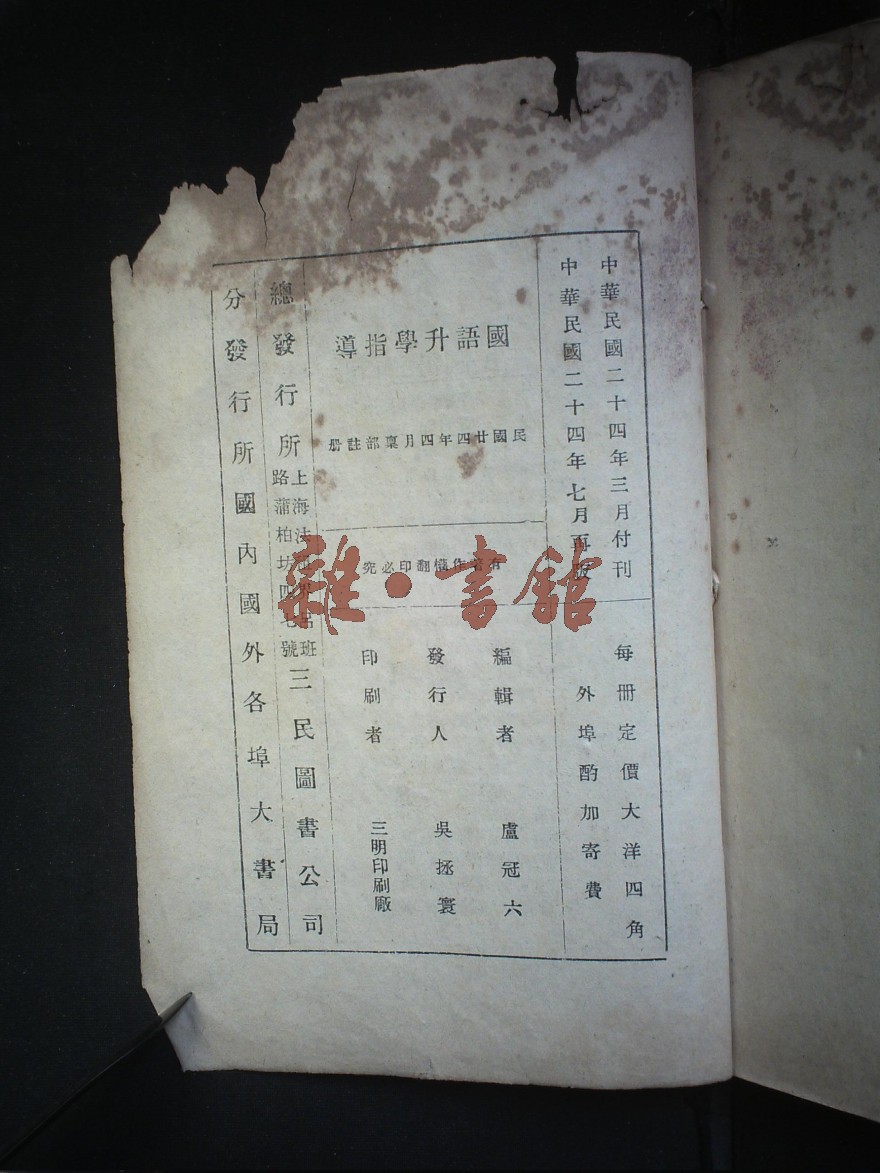 中華民國二十四年三月付刊
中華民國二十四年七月再版
每冊定價大洋四角
外埠酌加寄費
國語升學指導
民國廿四年四月稟部註册
有著作權翻印必究
編輯者 盧冠六
發行人 吳拯寰
印刷者 三明印刷廠
總發行所
上海法
班
路蒲柏坊四
號
三民圖書公司
分發行所國內國外各埠大書局
雜·書館